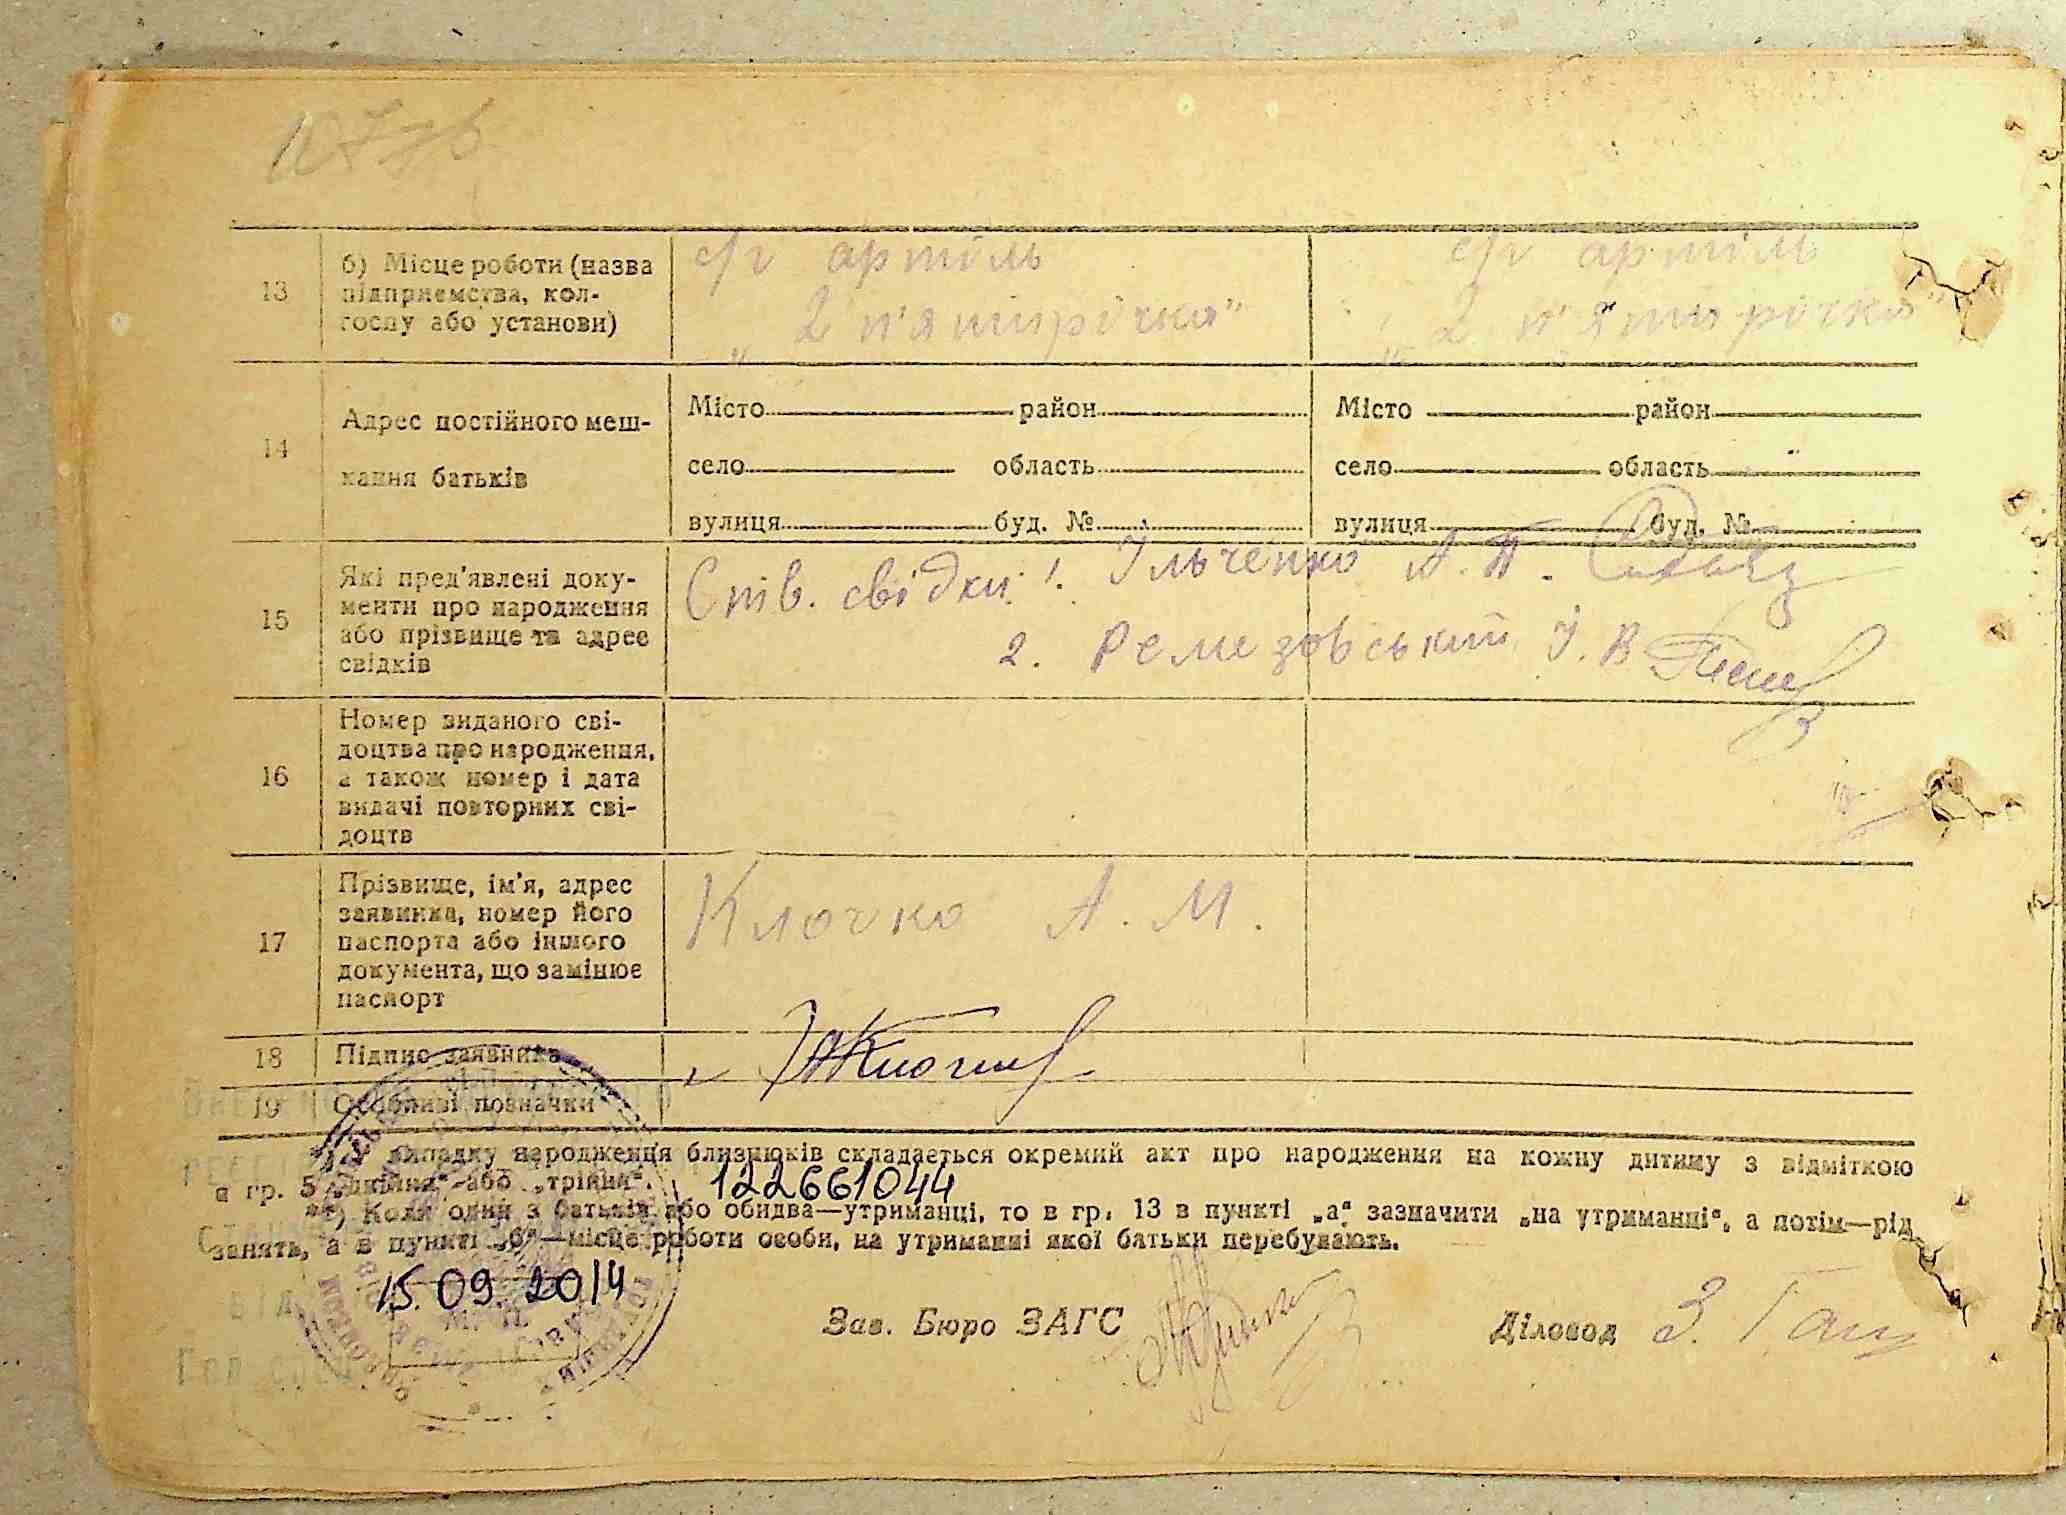 13
б) Місце роботи (назва
підприємства, кол-
госпу або установи)
с/г артіль
„2 п'ятирічка"
с/г артіль
„2 п'ятирічка"
14
Адрес постійного меш-
кання батьків
Місто район
село область
вулиця буд. №
Місто район
село область
вулиця буд. №
15
Які пред'явлені доку-
менти про народження
або прізвище та адрес
свідків
Ств. свідки: 1. Ільченко А. П.
2. Ремезовський І. В.
16
Номер виданого сві-
доцтва про народження,
а також номер і дата
видачі повторних сві-
доцтв
17
Прізвище, ім'я, адрес
заявника, номер його
паспорта або іншого
документа, що замінює
паспорт
Клочко А. М.
18
Підпис заявника
19
Особливі позначки
випадку народження близнюків складається окремий акт про народження на кожну дитину з відміткою
в гр. 5 „двійня" або „трійня".
122661044
**) Коли один з батьків або обидва—утриманці, то в гр. 13 в пункті „а" зазначити „на утриманні", а потім—рід
занять, а в пункті „б"—місце роботи особи, на утриманні якої батьки перебувають.
15.09.2014
М. П.
Зав. Бюро ЗАГС
Діловод